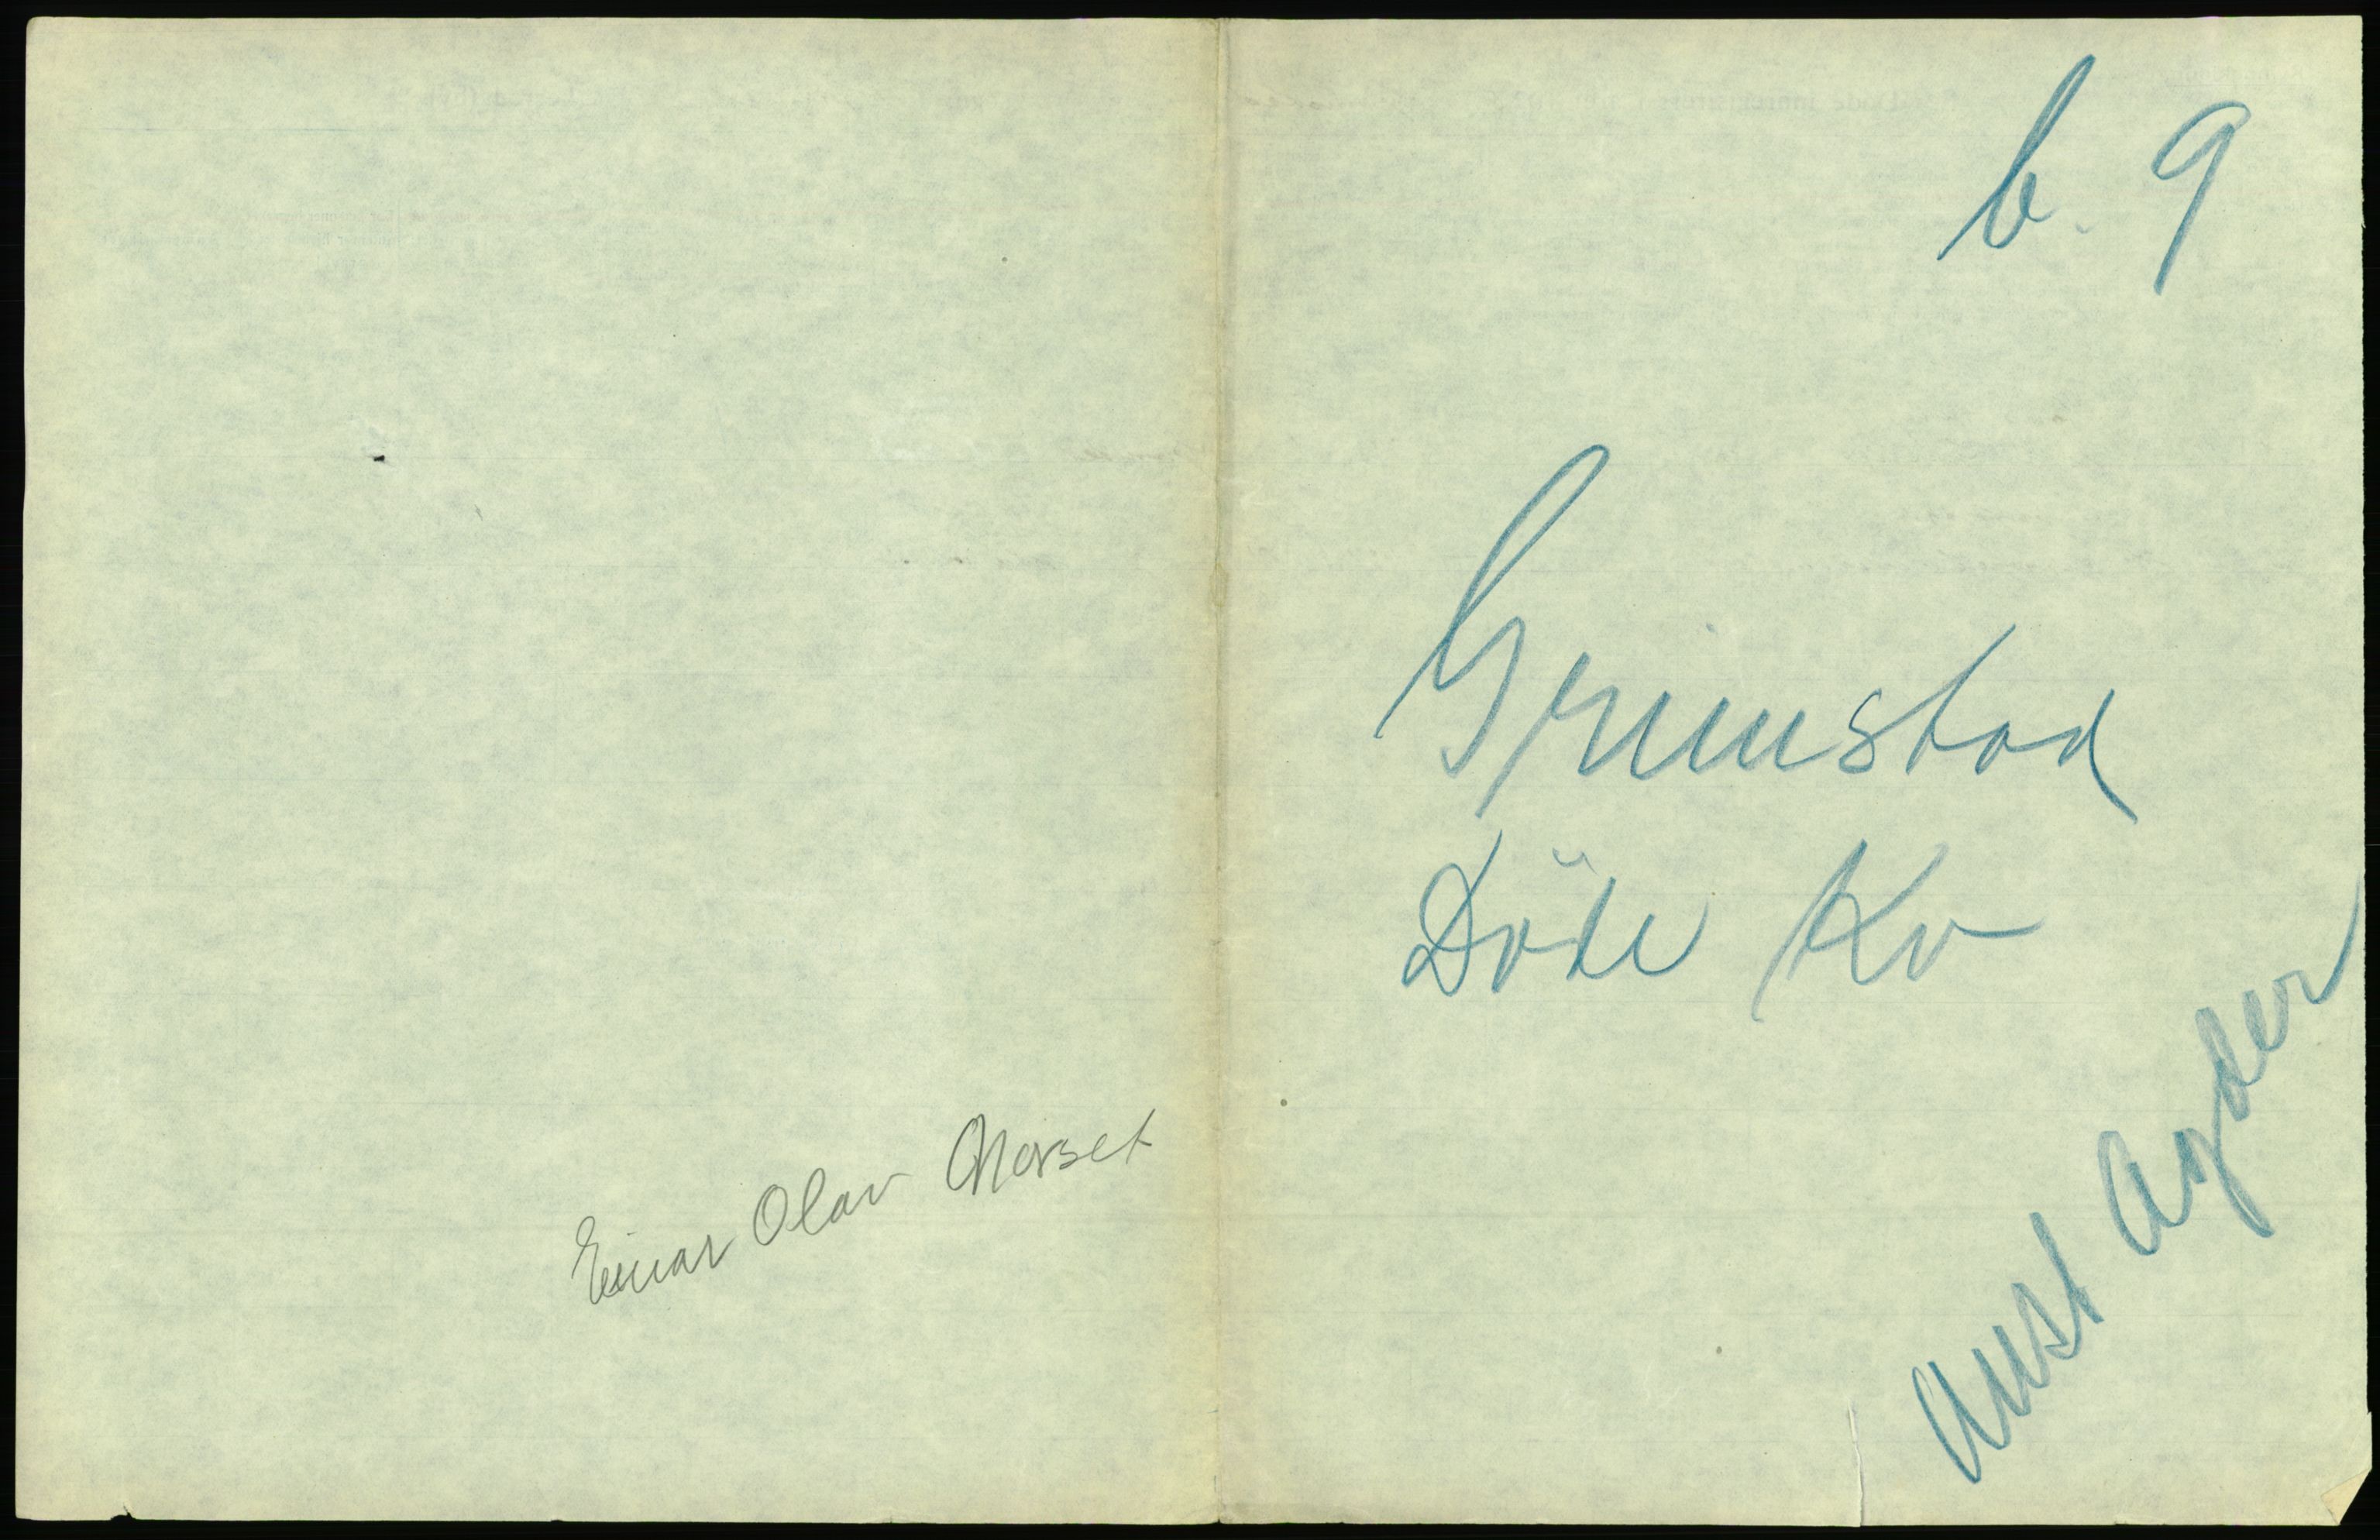 b. 9
Grimstad
Döde Kv
Aust Agder
Einar Olav Norset